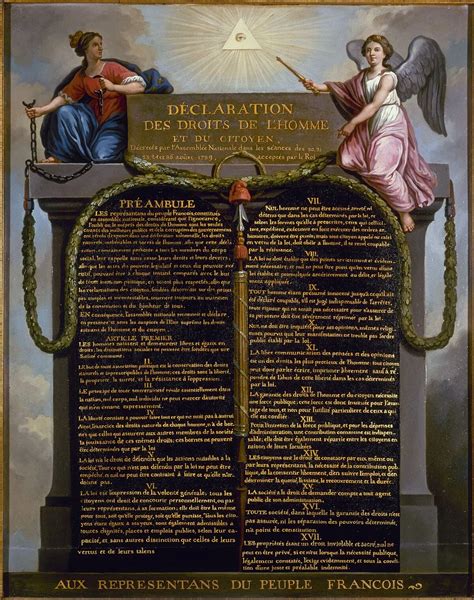 DÉCLARATION
DES DROITS DE L'HOMME
ET DU CITOYEN,
Décretés par l'Assemblée Nationale dans les séances des 20, 21
23, 24 et 26 août 1789, acceptés par le Roi
PRÉAMBULE
LES représentans du peuple François, constitués
en assemblée nationale, considérant que l'ignorance,
l'oubli ou le mépris des droits de l'homme sont les seules
causes des malheurs publics et de la corruption des gouvernemens
ont résolu d'exposer dans une déclaration solemnelle, les droits
naturels, inaliénables et sacrés de l'homme;
constamment présente à tous les membres du corps
social, leur rappelle sans cesse leurs droits et leurs devoirs;
EN conséquence, l'assemblée nationale reconnoît et déclare
en présence et sous les auspices de l'Etre suprême les droits
suivans de l'homme et du citoyen.
ARTICLE PREMIER
LES hommes naissent et demeurent libres et égaux en
droits; les distinctions sociales ne peuvent être fondées que sur
l'utilité commune.
II.
LE but de toute association politique est la conservation des droits
naturels et imprescriptibles de l'homme; ces droits sont la liberté,
la propriété, la sureté, et la résistance à l'oppression.
III.
LE principe de toute souveraineté réside essentiellement dans
la nation, nul corps, nul individu ne peut exercer d'autorité
qui n'en émane expressement.
IV.
LA liberté consiste à pouvoir faire tout ce qui ne nuit pas à autrui
Ainsi, l'exercice des droits naturels de chaque homme, n'a de bor-
nes que celles qui assurent aux autres membres de la société
la jouissance de ces mêmes droits; ces bornes ne peuvent
être déterminées que par la loi.
V.
LA loi n'a le droit de défendre que les actions nuisibles à la
société. Tout ce qui n'est pas défendu par la loi ne peut être
empêché, et nul ne peut être contraint à faire ce qu'elle n'or-
donne pas.
VI.
LA loi est l'expression de la volonté générale; tous les
citoyens ont droit de concourir personnellement, ou par
leurs représentans, à sa formation; elle doit être la même
pour tous, soit qu'elle protege, soit qu'elle punisse. Tous les ci-
toyens étant égaux à ses yeux, sont également admissibles à
toutes dignités, places et emplois publics, selon leur capa-
cité, et sans autres distinction que celles de leurs
vertus et de leurs talens.
VII.
NUL homme ne peut être accusé, arrêté, ni
détenu que dans les cas déterminés par la loi, et
selon les formes qu'elle a prescrites, ceux qui sollici-
tent, expédient, exécutent ou font exécuter des ordres ar-
bitraires, doivent être punis; mais tout citoyen appelé ou saisi
en vertu de la loi, doit obéir à l'instant, il se rend coupable
par la résistance.
VIII.
LA loi ne doit établir que des peines strictement et évidem-
ment nécessaires, et nul ne peut être puni qu'en vertu d'une
loi établie et promulguée antérieurement au délit, et légale-
ment appliquée.
IX.
TOUT homme étant présumé innocent jusqu'à ce qu'il ait
été déclaré coupable, s'il est jugé indispensable de l'arrêter,
toute rigueur qui ne serait pas nécessaire pour s'assurer de
sa personne doit être sévèrement réprimée par la loi.
X.
NUL ne doit être inquiété pour ses opinions, mêmes religi-
euses pourvu que leur manifestation ne trouble pas l'ordre
public établi par la loi.
XI.
LA libre communication des pensées et des opinions
est un des droits les plus précieux de l'homme; tout citoyen
peut donc parler, écrire, imprimer librement; sauf à ré-
pondre de l'abus de cette liberté dans les cas déterminés
par la loi.
XII.
LA garantie des droits de l'homme et du citoyen nécessite
une force publique; cette force est donc instituée pour l'avan-
tage de tous, et non pour l'utilité particuliere de ceux à qui
elle est confiée.
XIII.
Pour l'entretien de la force publique, et pour les dépenses
d'administration, une contribution commune est indispen-
sable; elle doit être également répartie entre les citoyens
en raison de leurs facultés.
XIV.
LES citoyens ont le droit de constater par eux même ou
par leurs représentans, la nécessité de la contribution pub-
lique, de la consentir librement, d'en suivre l'emploi, et d'en
déterminer la quotité, l'assiette, le recouvrement et la durée.
XV.
LA société a le droit de demander compte à tout agent
public de son administration.
XVI.
TOUTE société, dans laquelle la garantie des droits n'est
pas assurée, ni la séparation des pouvoirs déterminée,
n'a point de constitution.
XVII.
LES propriétés étant un droit inviolable et sacré, nul ne
peut en être privé, si ce n'est lorsque la nécessité publique,
légalement constatée, l'exige évidemment, et sous la condition
d'une juste et préalable indemnité.
AUX REPRESENTANS DU PEUPLE FRANCOIS